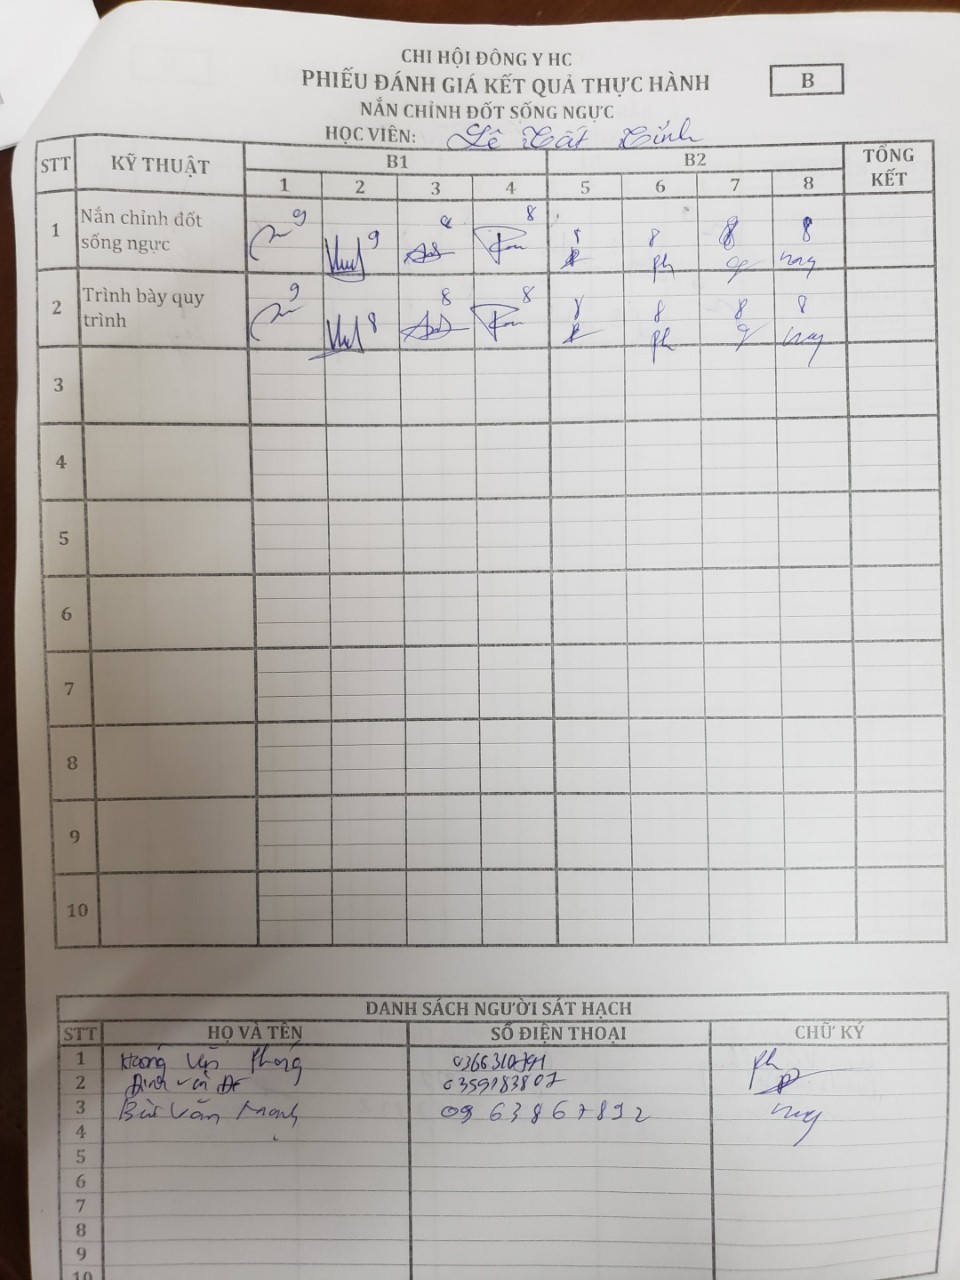 CHI HỘI ĐÔNG Y HC
PHIẾU ĐÁNH GIÁ KẾT QUẢ THỰC HÀNH
B
NẮN CHỈNH ĐỐT SỐNG NGỰC
HỌC VIÊN: Lê Tất
STT KỸ THUẬT B1 B2 TỔNG KẾT
1 2 3 4 5 6 7 8
1 Nắn chỉnh đốt sống ngực 9 9 8 8 8 8 8
2 Trình bày quy trình 9 8 8 8 8 8 8 8
3
4
5
6
7
8
9
10
DANH SÁCH NGƯỜI SÁT HẠCH
STT HỌ VÀ TÊN SỐ ĐIỆN THOẠI CHỮ KÝ
1 Phong Ph
2 Đinh
3 Bùi Văn Mạnh 0963867892
4
5
6
7
8
9
10